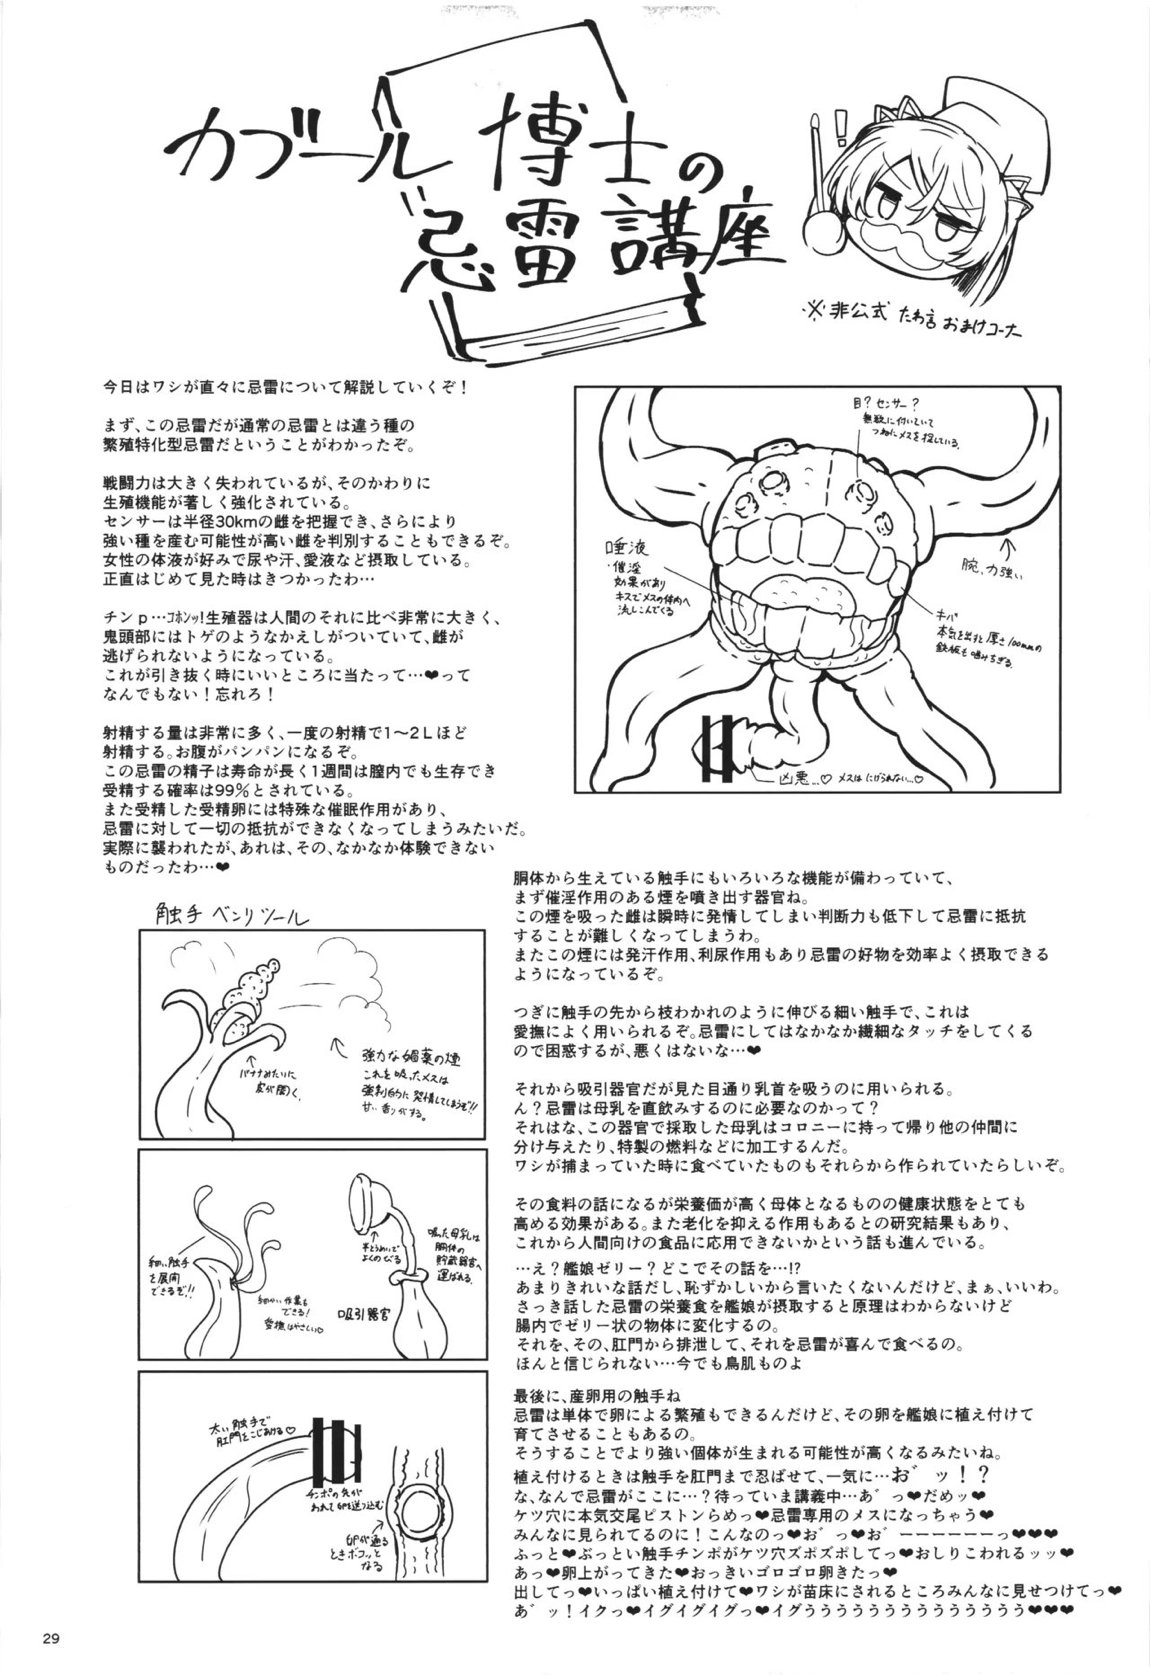 カブール博士の
忌雷講座
※非公式 たわ言 おまけコーナー
今日はワシが直々に忌雷について解説していくぞ！
まず、この忌雷だが通常の忌雷とは違う種の
繁殖特化型忌雷だということがわかったぞ。
戦闘力は大きく失われているが、そのかわりに
生殖機能が著しく強化されている。
センサーは半径30kmの雌を把握でき、さらにより
強い種を産む可能性が高い雌を判別することもできるぞ。
女性の体液が好みで尿や汗、愛液など摂取している。
正直はじめて見た時はきつかったわ…
チンｐ…ｺﾎﾝｯ!生殖器は人間のそれに比べ非常に大きく、
鬼頭部にはトゲのようなかえしがついていて、雌が
逃げられないようになっている。
これが引き抜く時にいいところに当たって…❤って
なんでもない！忘れろ！
射精する量は非常に多く、一度の射精で1～2Lほど
射精する。お腹がパンパンになるぞ。
この忌雷の精子は寿命が長く1週間は膣内でも生存でき
受精する確率は99%とされている。
また受精した受精卵には特殊な催眠作用があり、
忌雷に対して一切の抵抗ができなくなってしまうみたいだ。
実際に襲われたが、あれは、その、なかなか体験できない
ものだったわ…❤
目？センサー？
無数に付いていて
つねにメスを探している。
唾液
・催淫
効果があり
キスでメスの体内へ
流しこんでくる
腕、力強い
キバ
本気を出すと厚さ100mmの
鉄板も噛みちぎる。
凶悪…♡ メスはにげられない…♡
触手 ベンリツール
バナナみたいに
皮が開く。
強力な媚薬の煙
これを吸ったメスは
強制的に発情してしまうぞ!!
甘い香りがする。
細い触手
を展開
できるぞ!!
細かい作業も
できる！
愛撫はやさしい♡
半とうめいで
よくのびる
吸った母乳は
胴体の
貯蔵器官へ
運ばれる。
吸引器官
太い触手で
肛門をこじあける♡
チンポの先が
われて卵を送り込む
卵が通る
ときボコッと
なる
胴体から生えている触手にもいろいろな機能が備わっていて、
まず催淫作用のある煙を噴き出す器官ね。
この煙を吸った雌は瞬時に発情してしまい判断力も低下して忌雷に抵抗
することが難しくなってしまうわ。
またこの煙には発汗作用、利尿作用もあり忌雷の好物を効率よく摂取できる
ようになっているぞ。
つぎに触手の先から枝わかれのように伸びる細い触手で、これは
愛撫によく用いられるぞ。忌雷にしてはなかなか繊細なタッチをしてくる
ので困惑するが、悪くはないな…❤
それから吸引器官だが見た目通り乳首を吸うのに用いられる。
ん？忌雷は母乳を直飲みするのに必要なのかって？
それはな、この器官で採取した母乳はコロニーに持って帰り他の仲間に
分け与えたり、特製の燃料などに加工するんだ。
ワシが捕まっていた時に食べていたものもそれらから作られていたらしいぞ。
その食料の話になるが栄養価が高く母体となるものの健康状態をとても
高める効果がある。また老化を抑える作用もあるとの研究結果もあり、
これから人間向けの食品に応用できないかという話も進んでいる。
…え？艦娘ゼリー？どこでその話を…!?
あまりきれいな話だし、恥ずかしいから言いたくないんだけど、まぁ、いいわ。
さっき話した忌雷の栄養食を艦娘が摂取すると原理はわからないけど
腸内でゼリー状の物体に変化するの。
それを、その、肛門から排泄して、それを忌雷が喜んで食べるの。
ほんと信じられない…今でも鳥肌ものよ
最後に、産卵用の触手ね
忌雷は単体で卵による繁殖もできるんだけど、その卵を艦娘に植え付けて
育てさせることもあるの。
そうすることでより強い個体が生まれる可能性が高くなるみたいね。
植え付けるときは触手を肛門まで忍ばせて、一気に…お゛ッ！？
な、なんで忌雷がここに…？待っていま講義中…あ゛っ❤だめッ❤
ケツ穴に本気交尾ピストンらめっ❤忌雷専用のメスになっちゃう❤
みんなに見られてるのに！こんなのっ❤お゛っ❤お゛ーーーーーーっ❤❤❤
ふっと❤ぶっとい触手チンポがケツ穴ズポズポしてっ❤おしりこわれるッッ❤
あっ❤卵上がってきた❤おっきいゴロゴロ卵きたっ❤
出してっ❤いっぱい植え付けて❤ワシが苗床にされるところみんなに見せつけてっ❤
あ゛ッ！イクっ❤イグイグイグっ❤イグぅぅぅぅぅぅぅぅぅぅぅぅぅぅぅ❤❤❤
29